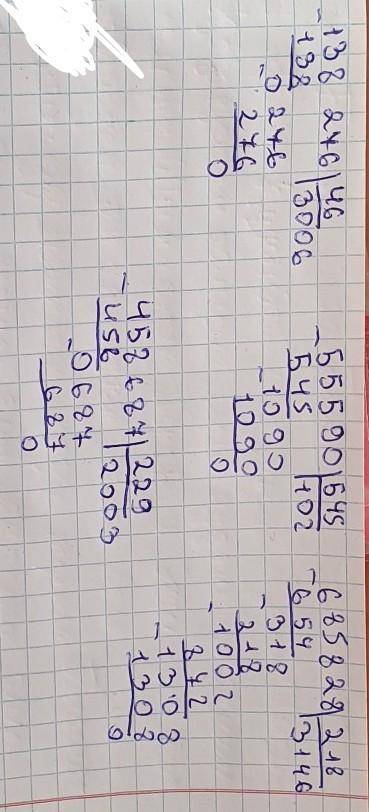 -138 276|46
138 |3006
-0 276
276
0
-55590|545
545 |102
-1090
1090
0
-685828|218
654 |3146
-318
218
-1002
872
-1308
1308
0
-458 687|229
458 |2003
-0687
687
0